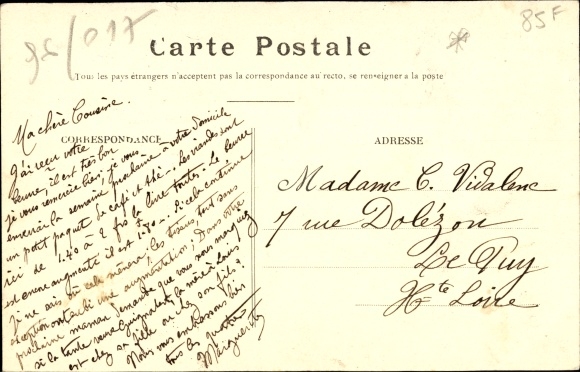 95/017
85F
Carte Postale
Tous les pays étrangers n'acceptent pas la correspondance au recto, se renseigner à la poste
CORRESPONDANCE
Ma chère Cousine.
J'ai reçu votre
beurre, il est très bon
je vous remercie bien, je vous
enverrai la semaine prochaine à votre domicile
un petit paquet de café et thé. Les viandes sont
ici de 1.40 à 2 frs la livre toutes. Le beurre
est encore augmenté il est Si cela continue
je ne sais où cela mènera, les tissus, tout sans
exception ont subi une augmentation; Dans votre
prochaine maman demande que vous nous marquiez
si la tante la mère à Louis
est chez sa fille ou chez son fils?
Nous vous embrassons bien
tous les quatre
Marguerite
ADRESSE
Madame C. Vidalenc
7 rue Dolézon
Le Puy
Hte Loire